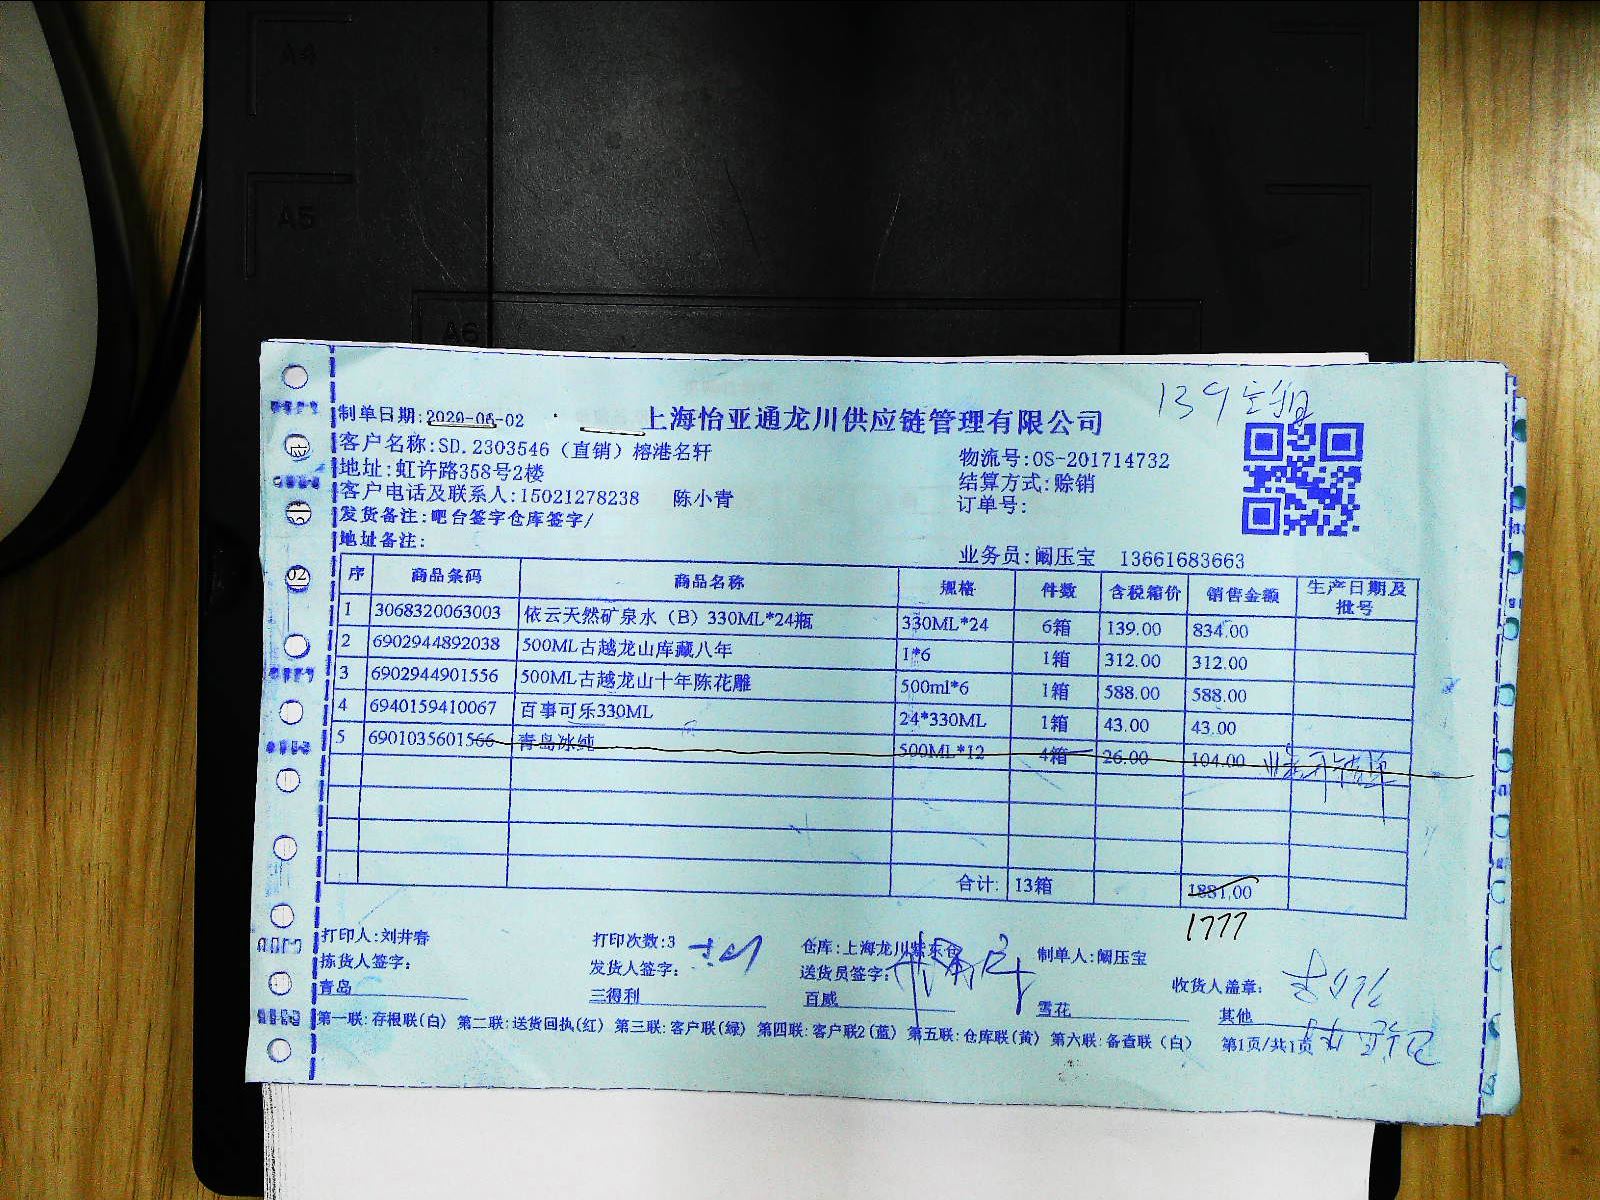 A4
A5
A6
139
制单日期:2020-06-02
上海怡亚通龙川供应链管理有限公司
客户名称:SD.2303546（直销）榕港名轩
物流号:OS-201714732
地址:虹许路358号2楼
结算方式:赊销
客户电话及联系人:15021278238 陈小青
订单号:
发货备注:吧台签字仓库签字/
地址备注:
业务员:阚压宝 13661683663
序 商品条码 商品名称 规格 件数 含税箱价 销售金额 生产日期及批号
1 3068320063003 依云天然矿泉水（B）330ML*24瓶 330ML*24 6箱 139.00 834.00
2 6902944892038 500ML古越龙山库藏八年 1*6 1箱 312.00 312.00
3 6902944901556 500ML古越龙山十年陈花雕 500ml*6 1箱 588.00 588.00
4 6940159410067 百事可乐330ML 24*330ML 1箱 43.00 43.00
5 6901035601566 青岛冰纯 500ML*12 4箱 26.00 104.00
合计: 13箱 1881.00
1777
打印人:刘井春 打印次数:3 仓库:上海龙川紫东仓 制单人:阚压宝
拣货人签字: 发货人签字: 送货员签字: 收货人盖章:
青岛 三得利 百威 雪花 其他
第一联:存根联(白) 第二联:送货回执(红) 第三联:客户联(绿) 第四联:客户联2(蓝) 第五联:仓库联(黄) 第六联:备查联（白） 第1页/共1页